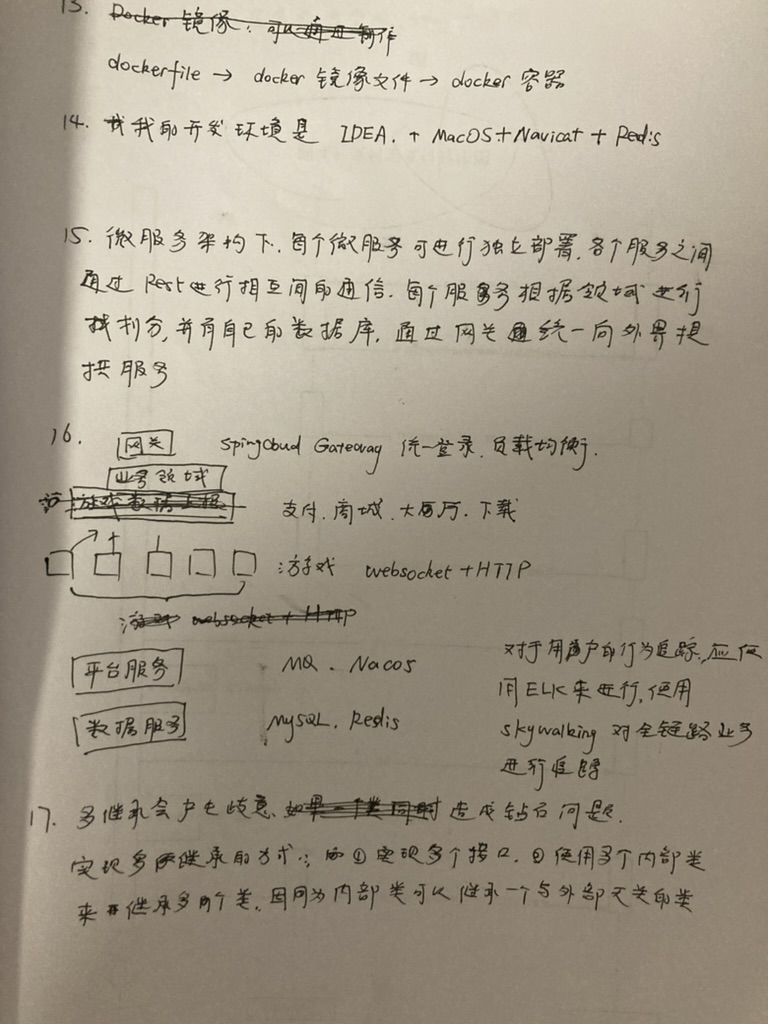 13. Docker 镜像, 可以通过制作
dockerfile → docker 镜像文件 → docker 容器
14. 我的开发环境是 IDEA. + MacOS + Navicat + Redis
15. 微服务架构下, 每个微服务可进行独立部署, 各个服务之间
通过 Rest 进行相互间的通信. 每个服务根据领域进行
划分, 并有自己的数据库, 通过网关统一向外界提
供服务
16. 网关 SpingCloud Gateway 统一登录. 负载均衡.
业务领域
游戏数据上报
支付. 商城. 大厅. 下载
游戏 websocket + HTTP
游戏 websocket + HTTP
平台服务 MQ. Nacos
数据服务 MySQL. Redis
对于用户的行为追踪, 应使
用 ELK 来进行, 使用
skywalking 对全链路业务
进行追踪
17. 多继承会产生歧义, 如果一个类同时 造成钻石问题.
实现多继承的方式: ① 实现多个接口. ② 使用多个内部类
来继承多个类. 因为内部类可以继承一个与外部无关的类